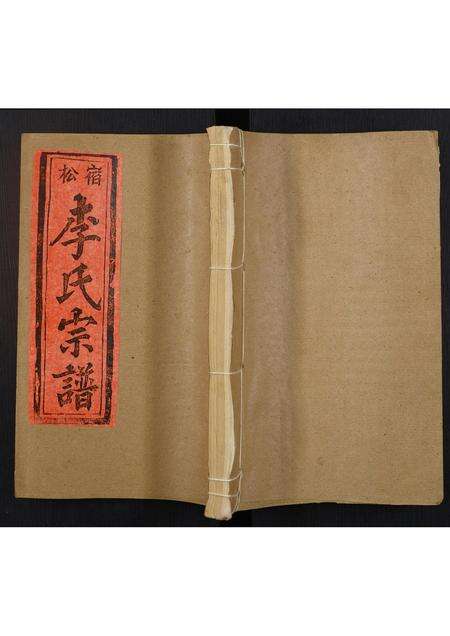 宿松
李氏宗譜